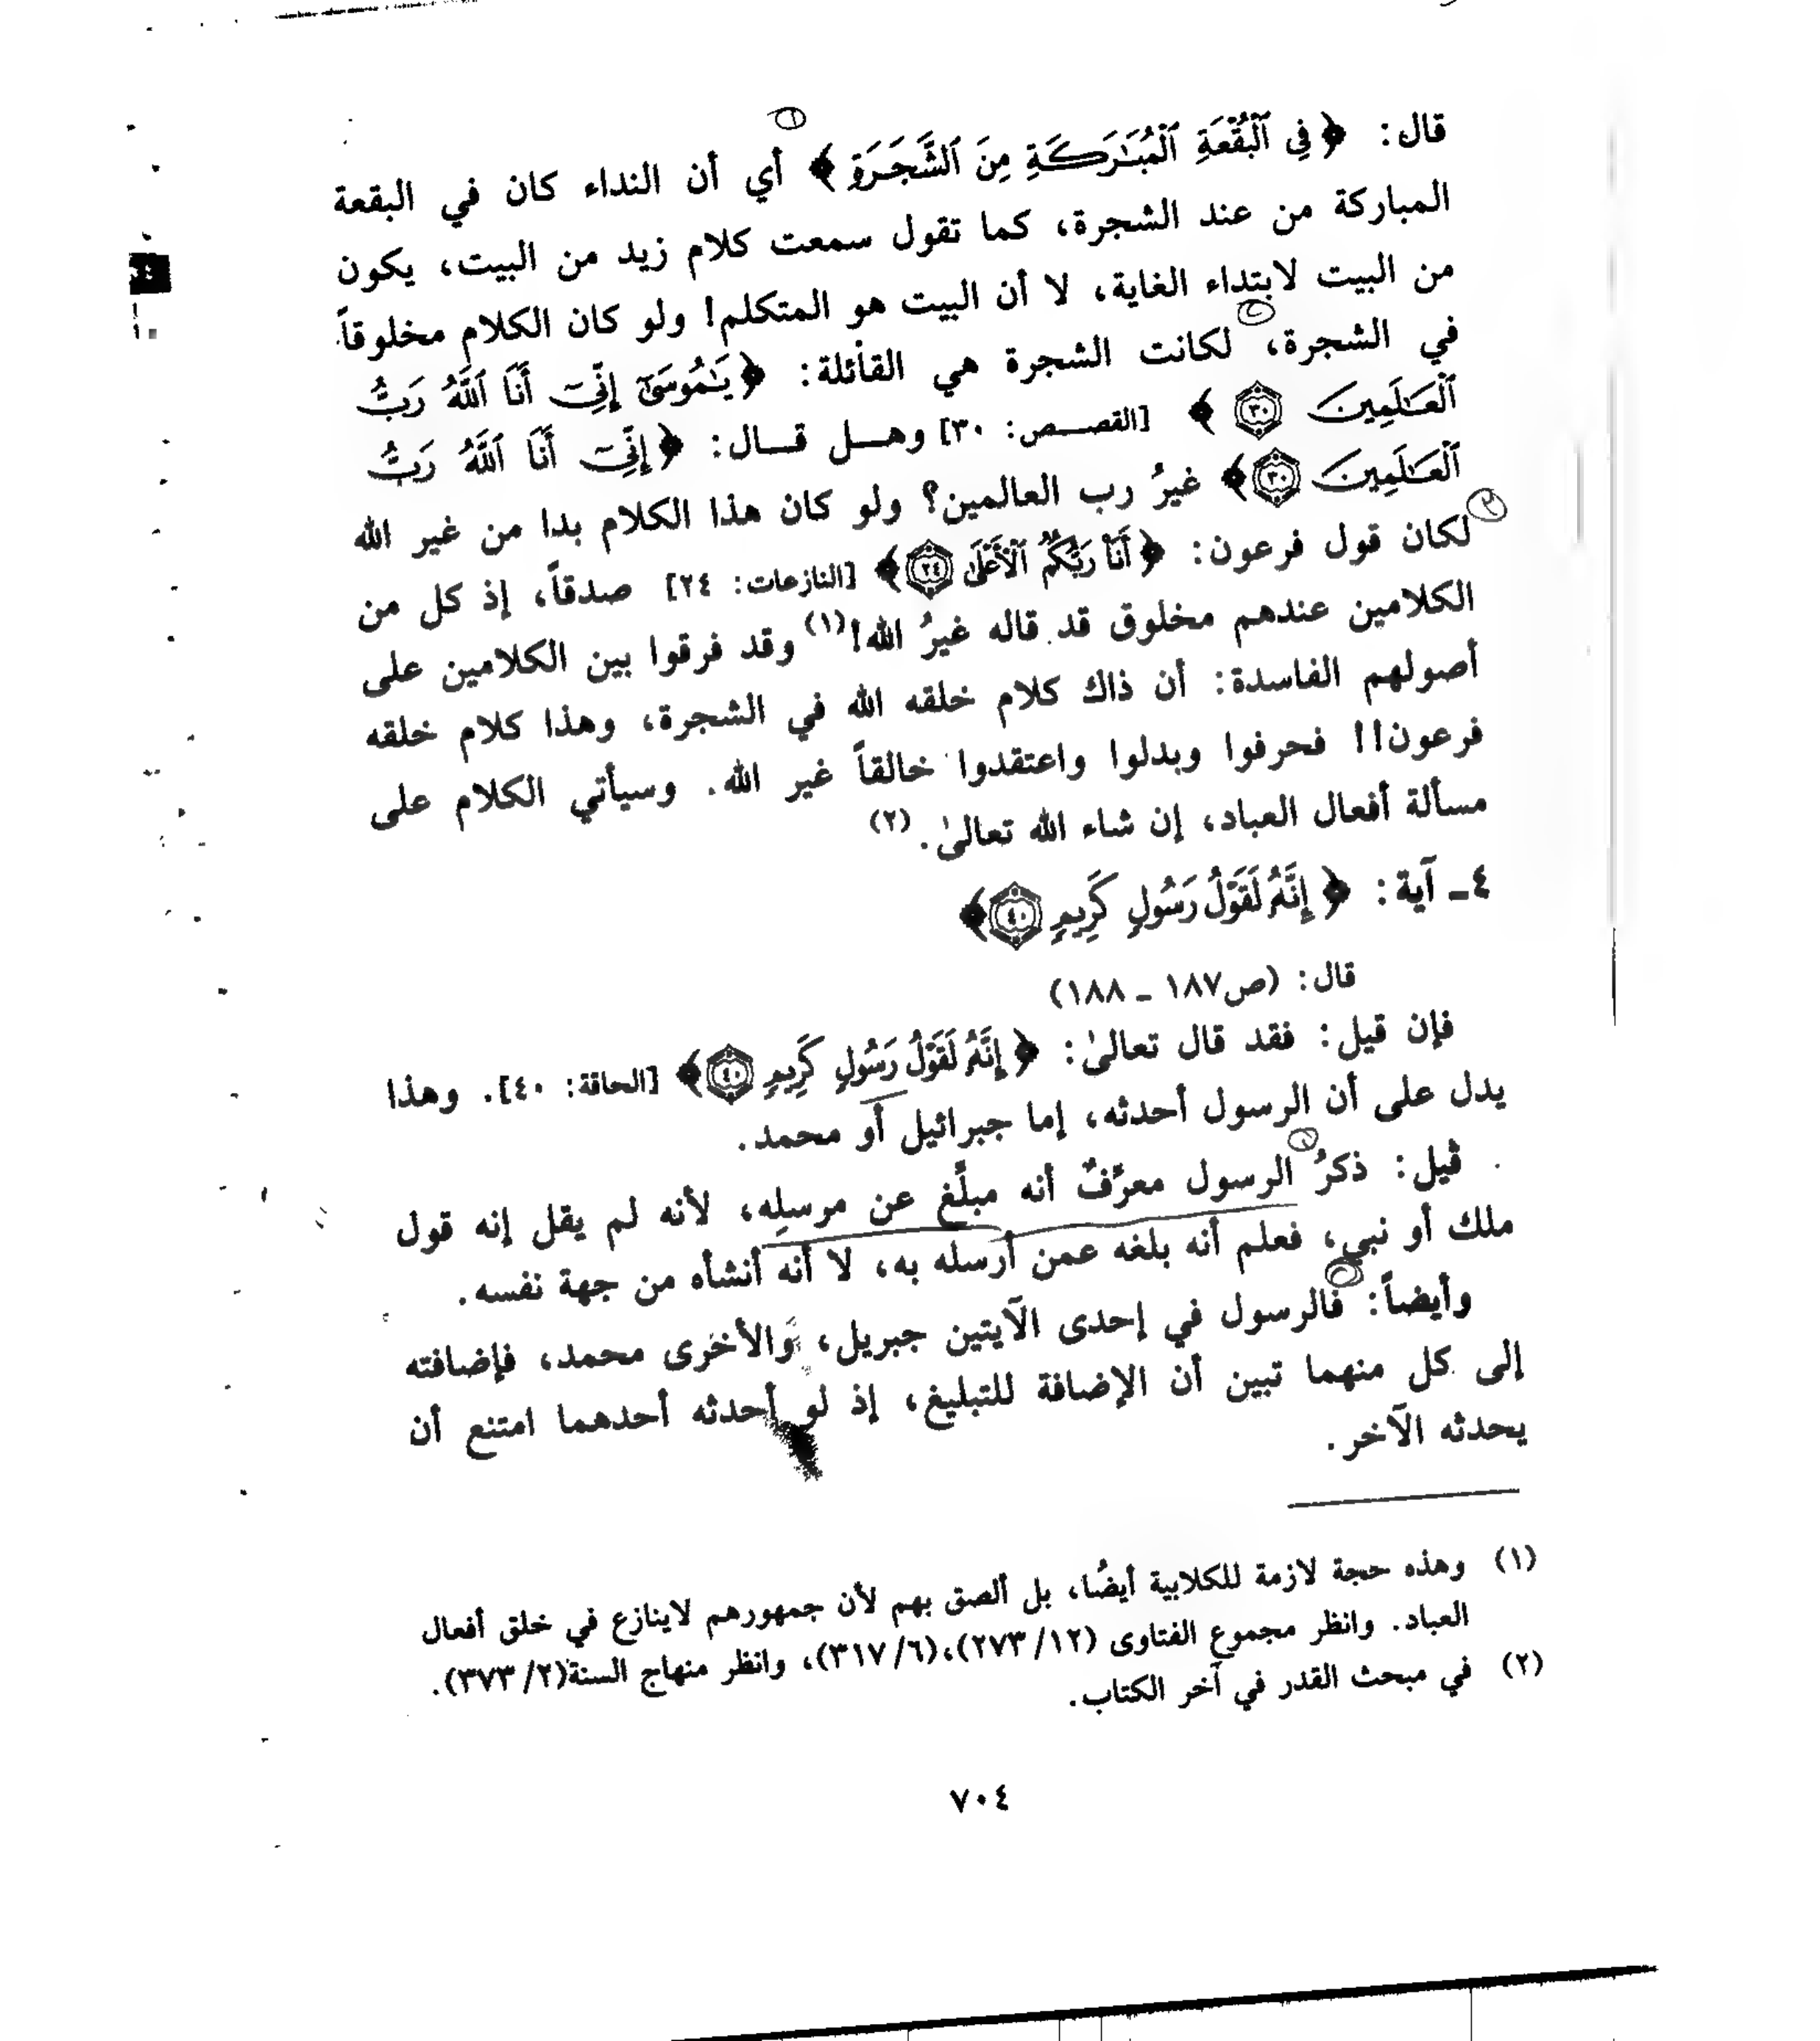 قال: ﴿فِي ٱلْبُقْعَةِ ٱلْمُبَٰرَكَةِ مِنَ ٱلشَّجَرَةِ﴾ أي أن النداء كان في البقعة
المباركة من عند الشجرة، كما تقول سمعت كلام زيد من البيت، يكون
من البيت لابتداء الغاية، لا أن البيت هو المتكلم! ولو كان الكلام مخلوقاً
في الشجرة، لكانت الشجرة هي القائلة: ﴿يَٰمُوسَىٰٓ إِنِّيٓ أَنَا ٱللَّهُ رَبُّ
ٱلْعَٰلَمِينَ ٣٠﴾ [القصص: ٣٠] وهل قال: ﴿إِنِّيٓ أَنَا ٱللَّهُ رَبُّ
ٱلْعَٰلَمِينَ ٣٠﴾ غيرُ رب العالمين؟ ولو كان هذا الكلام بدا من غير الله
لكان قول فرعون: ﴿أَنَا۠ رَبُّكُمُ ٱلْأَعْلَىٰ ٢٤﴾ [النازعات: ٢٤] صدقاً، إذ كل من
الكلامين عندهم مخلوق قد قاله غيرُ الله!(١) وقد فرقوا بين الكلامين على
أصولهم الفاسدة: أن ذاك كلام خلقه الله في الشجرة، وهذا كلام خلقه
فرعون!! فحرفوا وبدلوا واعتقدوا خالقاً غير الله. وسيأتي الكلام على
مسألة أفعال العباد، إن شاء الله تعالىٰ.(٢)
٤ـ آية: ﴿إِنَّهُۥ لَقَوْلُ رَسُولٍ كَرِيمٍ ٤٠﴾
قال: (ص١٨٧ ـ ١٨٨)
فإن قيل: فقد قال تعالىٰ: ﴿إِنَّهُۥ لَقَوْلُ رَسُولٍ كَرِيمٍ ٤٠﴾ [الحاقة: ٤٠]. وهذا
يدل على أن الرسول أحدثه، إما جبرائيل أو محمد.
قيل: ذكرُ الرسول معرِّفٌ أنه مبلِّغ عن مرسلِه، لأنه لم يقل إنه قول
ملك أو نبي، فعلم أنه بلغه عمن أرسله به، لا أنه أنشأه من جهة نفسه.
وأيضاً: فالرسول في إحدى الآيتين جبريل، والأخرى محمد، فإضافته
إلى كل منهما تبين أن الإضافة للتبليغ، إذ لو أحدثه أحدهما امتنع أن
يحدثه الآخر.
(١) وهذه حجة لازمة للكلابية أيضًا، بل ألصق بهم لأن جمهورهم لاينازع في خلق أفعال
العباد. وانظر مجموع الفتاوى (١٢/ ٢٧٣)،(٦/ ٣١٧)، وانظر منهاج السنة(٢/ ٣٧٣).
(٢) في مبحث القدر في آخر الكتاب.
٧٠٤